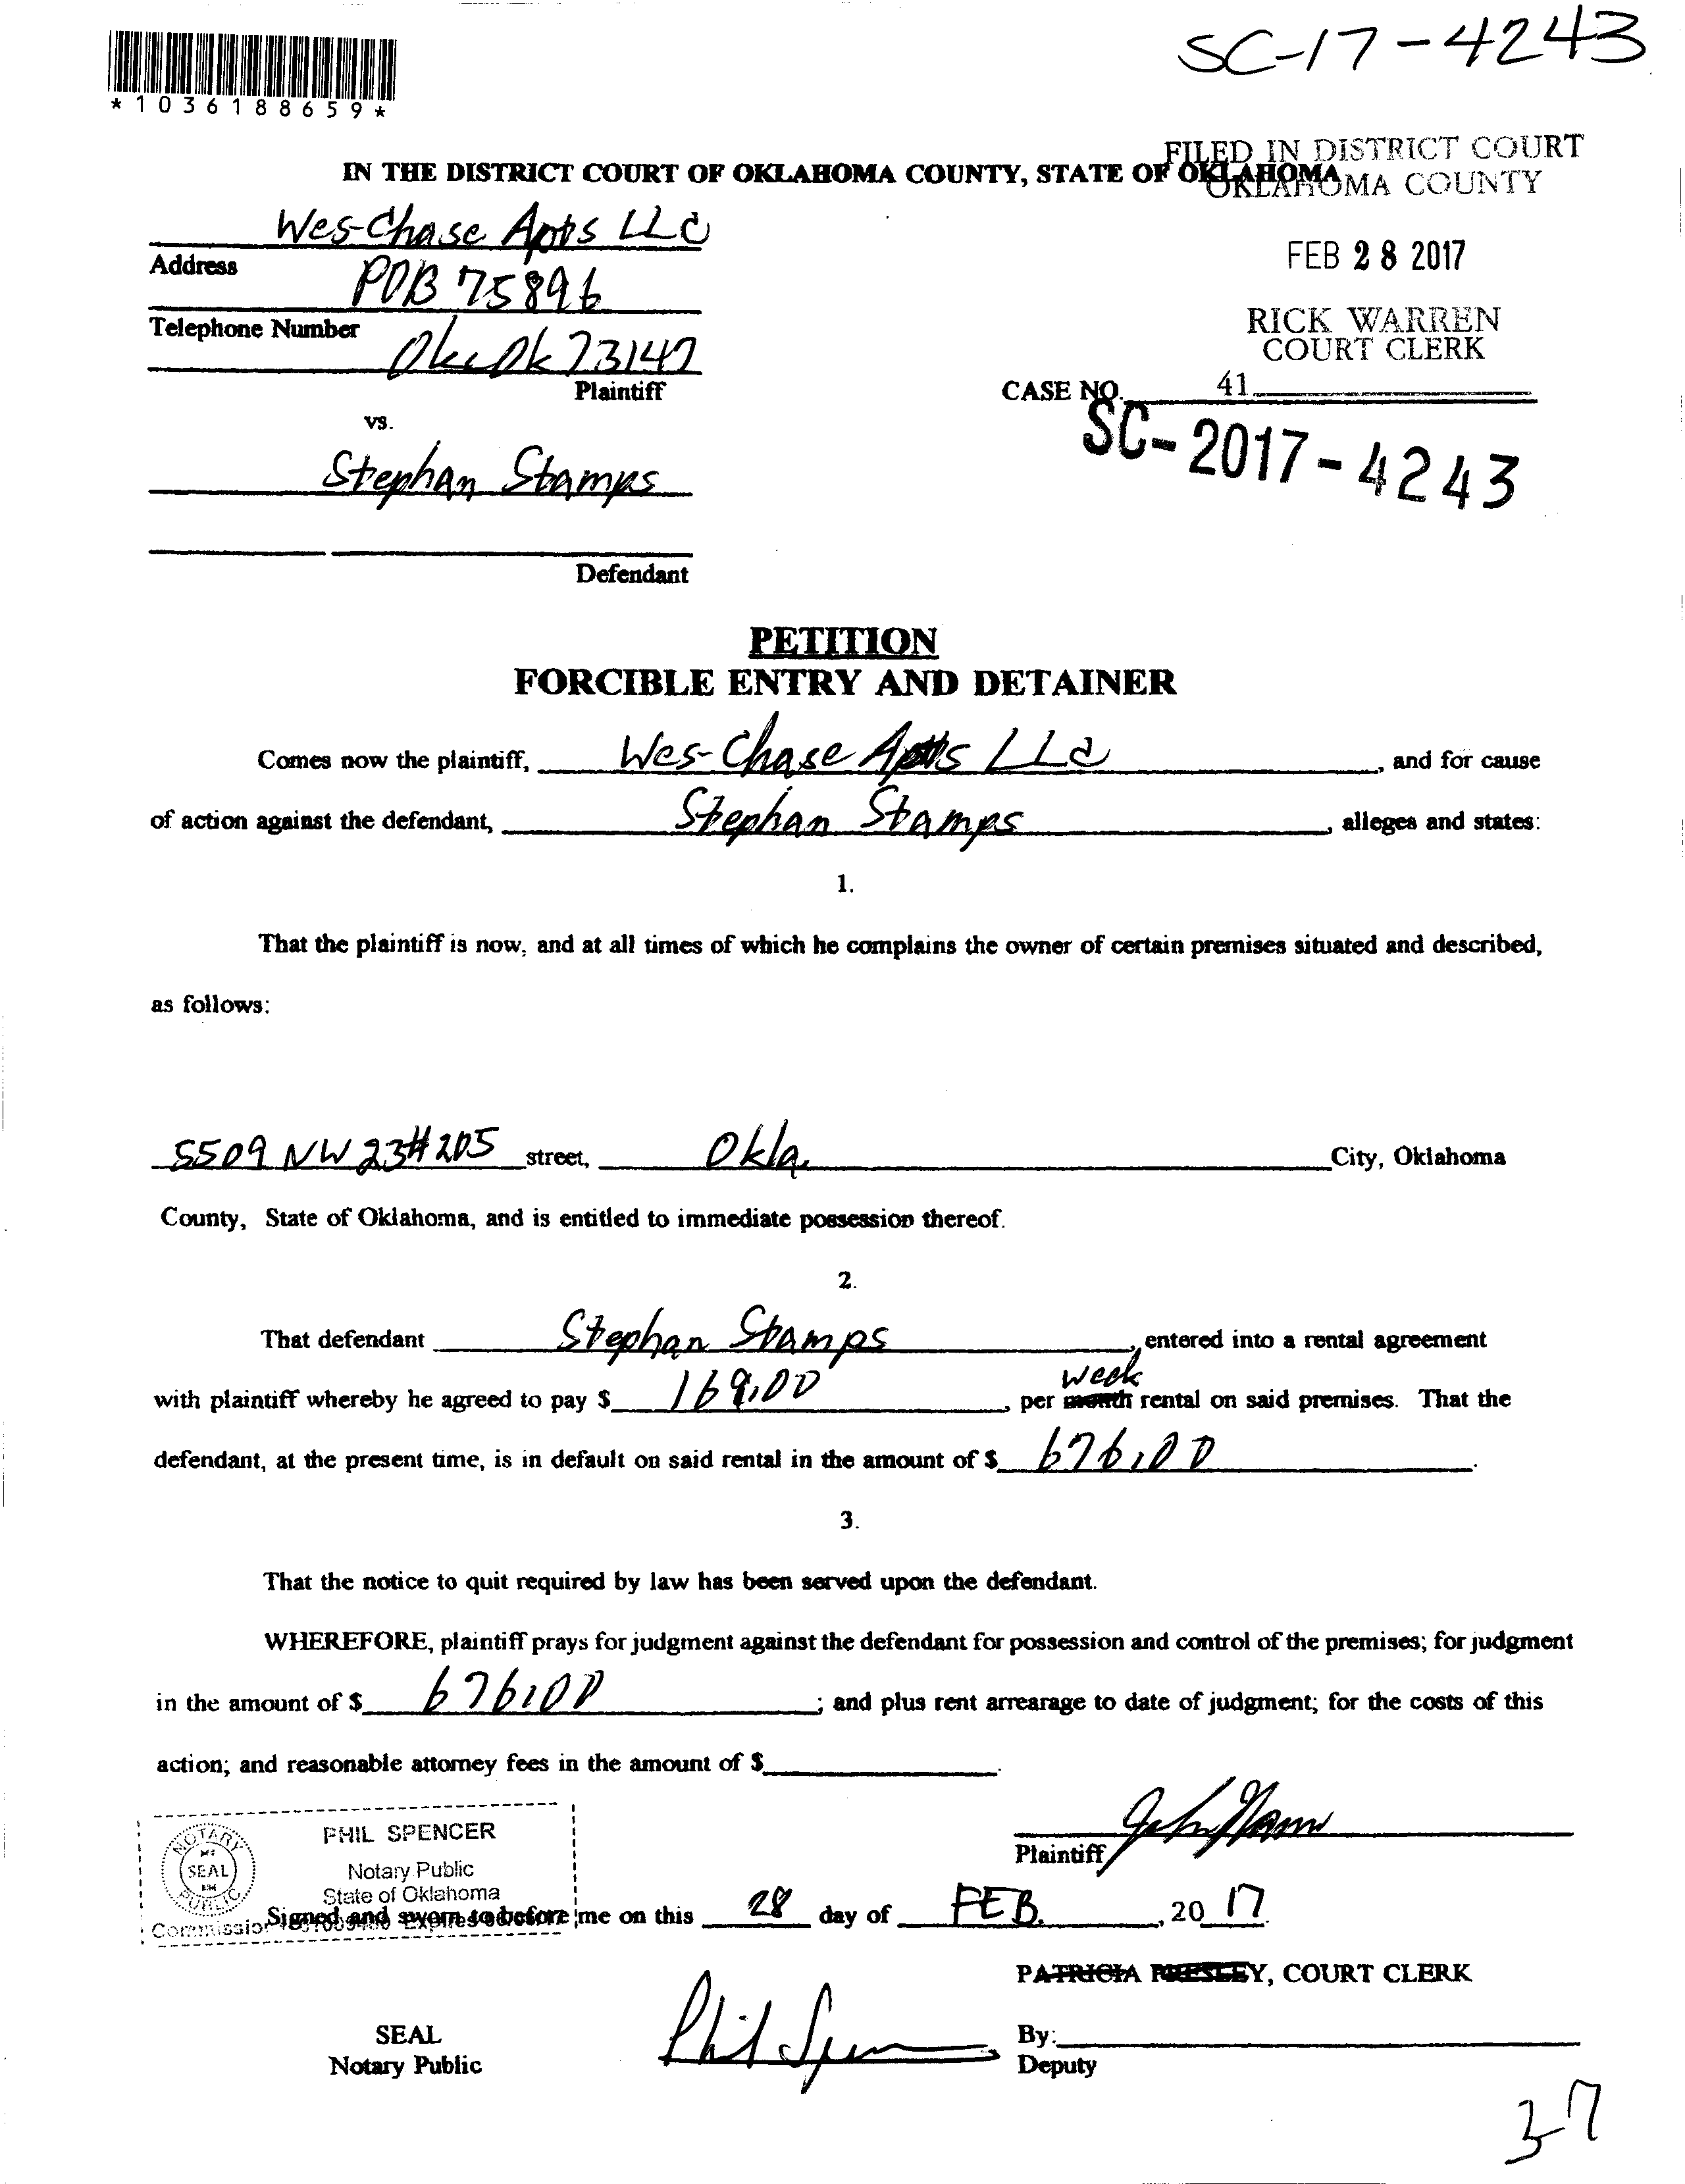 SC-17-4243
*1036188659*
FILED IN DISTRICT COURT
OKLAHOMA COUNTY
IN THE DISTRICT COURT OF OKLAHOMA COUNTY, STATE OF OKLAHOMA
Wes-Chase Apts LLC
FEB 28 2017
Address
POB 75896
RICK WARREN
COURT CLERK
Telephone Number
Okc Ok 73147
Plaintiff
CASE NO.
41
vs.
SC-2017-4243
Stephan Stamps
Defendant
PETITION
FORCIBLE ENTRY AND DETAINER
Comes now the plaintiff, Wes-Chase Apts LLC, and for cause
of action against the defendant, Stephan Stamps, alleges and states:
1.
That the plaintiff is now, and at all times of which he complains the owner of certain premises situated and described,
as follows:
5509 NW 23#205 street, Okla. City, Oklahoma
County, State of Oklahoma, and is entitled to immediate possession thereof.
2.
That defendant Stephan Stamps, entered into a rental agreement
week
with plaintiff whereby he agreed to pay $ 169.00, per month rental on said premises. That the
defendant, at the present time, is in default on said rental in the amount of $ 676.00.
3.
That the notice to quit required by law has been served upon the defendant.
WHEREFORE, plaintiff prays for judgment against the defendant for possession and control of the premises; for judgment
in the amount of $ 676.00; and plus rent arrearage to date of judgment; for the costs of this
action; and reasonable attorney fees in the amount of $.
NOTARY
SEAL
PUBLIC
PHIL SPENCER
Notary Public
State of Oklahoma
Plaintiff
Signed and sworn to before me on this 28 day of FEB., 20 17.
PATRICIA PRESLEY, COURT CLERK
Phil Spencer
SEAL
Notary Public
By:
Deputy
3-7